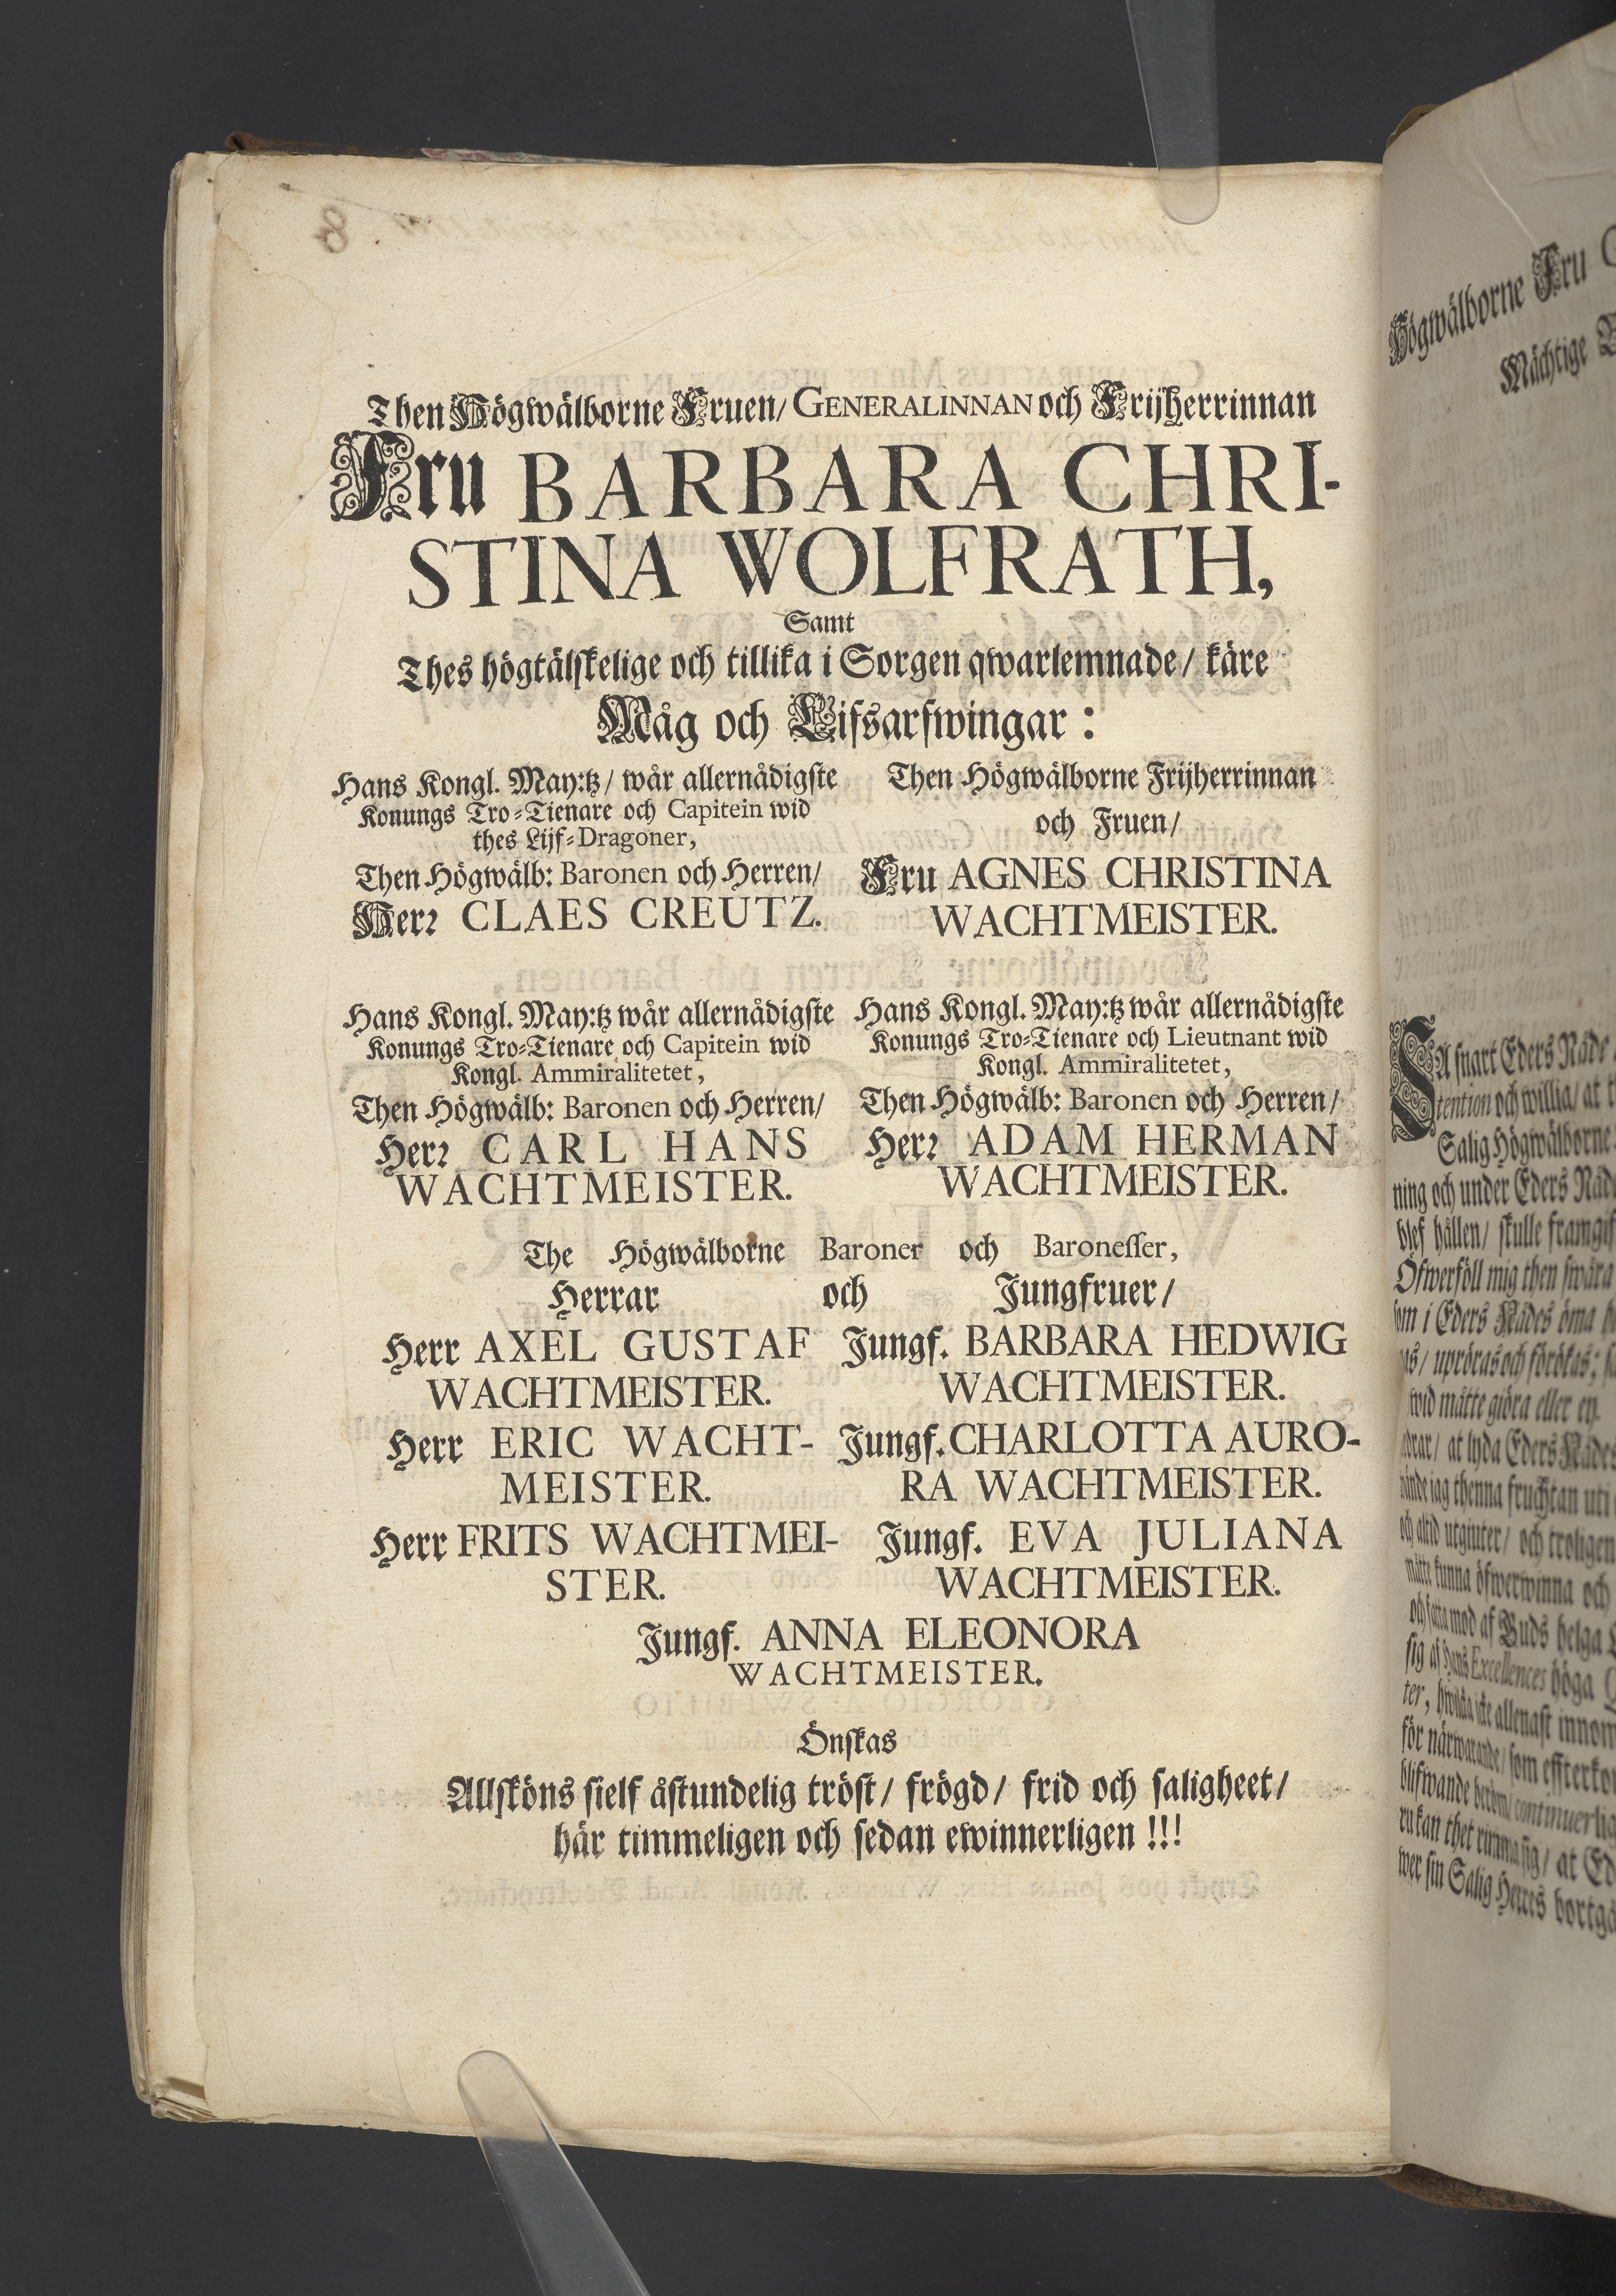 Then Högwälborne Fruen/ GENERALINNAN och Frijherrinnan
Fru BARBARA CHRI-
STINA WOLFRATH,
Samt
Thes högtälskelige och tillika i Sorgen qwarlemnade/ käre
Måg och Lifsarfwingar:
Hans Kongl. May:tz/ wår allernådigste
Konungs Tro-Tienare och Capitein wid
thes Lijf-Dragoner,
Then Högwälb: Baronen och Herren/
Herr CLAES CREUTZ.
Then Högwälborne Frijherrinnan
och Fruen/
Fru AGNES CHRISTINA
WACHTMEISTER.
Hans Kongl. May:tz wår allernådigste
Konungs Tro-Tienare och Capitein wid
Kongl. Ammiralitetet,
Then Högwälb: Baronen och Herren/
Herr CARL HANS
WACHTMEISTER.
Hans Kongl. May:tz wår allernådigste
Konungs Tro-Tienare och Lieutnant wid
Kongl. Ammiralitetet,
Then Högwälb: Baronen och Herren/
Herr ADAM HERMAN
WACHTMEISTER.
The Högwälborne Baroner och Baronesser,
Herrar och Jungfruer/
Herr AXEL GUSTAF
WACHTMEISTER.
Herr ERIC WACHT-
MEISTER.
Herr FRITS WACHTMEI-
STER.
Jungf. BARBARA HEDWIG
WACHTMEISTER.
Jungf. CHARLOTTA AURO-
RA WACHTMEISTER.
Jungf. EVA JULIANA
WACHTMEISTER.
Jungf. ANNA ELEONORA
WACHTMEISTER.
Önskas
Allsköns sielf åstundelig tröst/ frögd/ frid och saligheet/
här timmeligen och sedan ewinnerligen !!!
Högwälborne Fru
Mächtige
SÅ snart Eders Nåde
tention och willia/ at
Salig Högwälborne
ning och under Eders Nåd
blef hållen/ skulle framgif
Öfwerföll mig then swåra
som i Eders Nådes öma
as/ upröras och förökas;
wid måtte giöra eller ey.
at lyda Eders Nådes
jag thenna fruchtan uti
och altid utgiuter/ och troligen
måtte kunna öfwerwinna och
och fatta mod af Guds helga
sig af Hans Excellences höga
ter, hwilka icke allenast innom
för närwarande/ som effterko
blifwande continuerlig
kan thet at Ed
wer sin Salig Herres bortgå